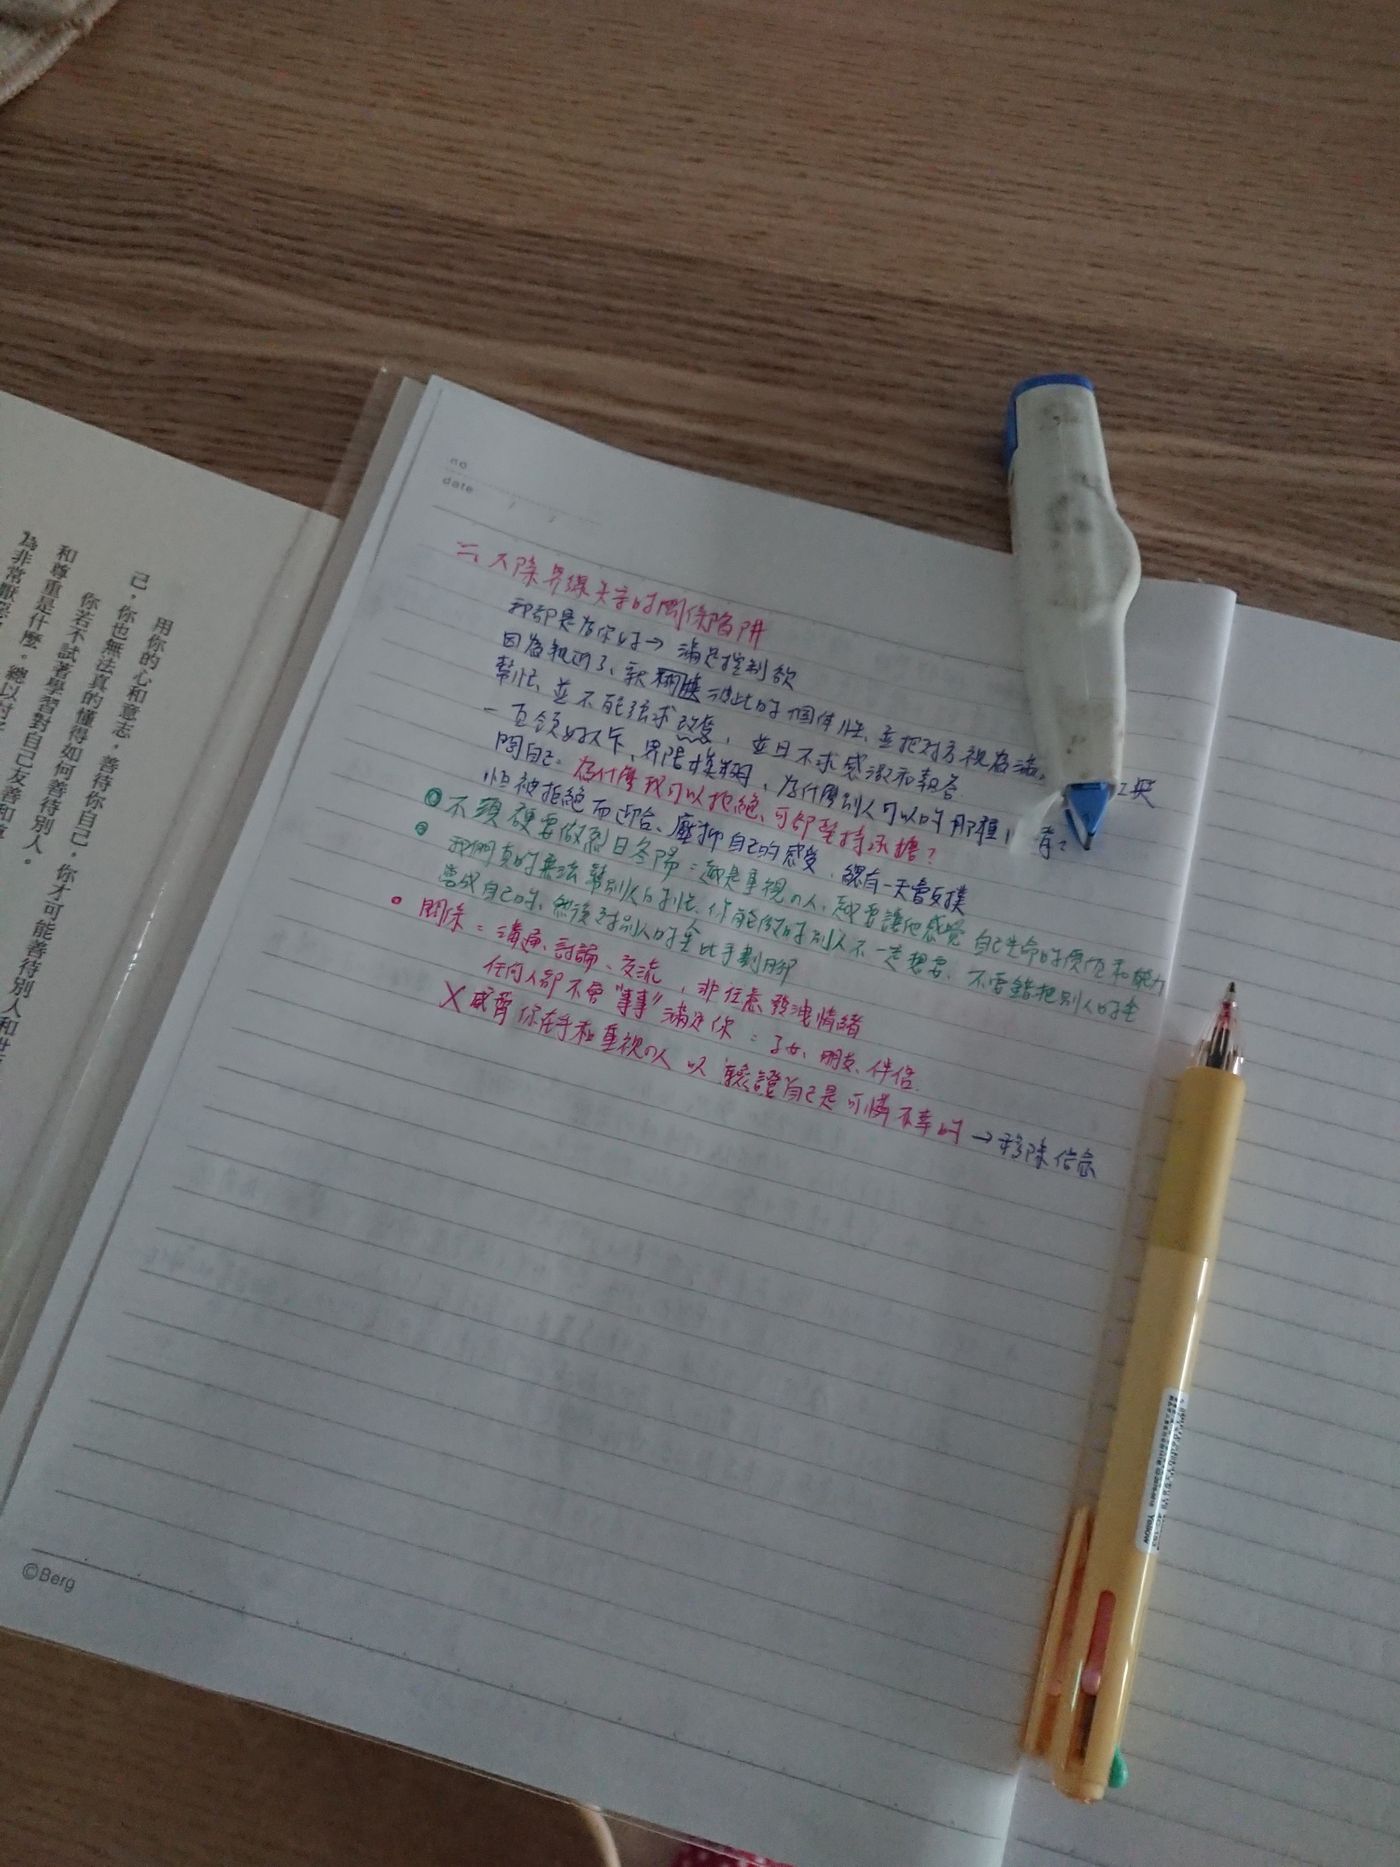 用你的心和意志，善待你自己，你才可能善待別人和世
己，你也無法真的懂得如何善待別人。
你若不試著學習對自己友善和尊
和尊重是什麼。總以討
為非常厭惡
no
date
二、人際界線失守的關係陷阱
那都是為你好→滿足控制欲
因為親近了、就模糊彼此的個体性、並把对方視為滿
幫忙、並不能強求改變，並且不求感激和報答.
一直領好人卡、界限模糊，為什麼別人可以的那種，
問自己。為什麼我可以拒絕、可卻堅持承擔？
怕被拒絕而迎合、壓抑自己的感受，總有一天會反撲
不須硬要做烈日冬陽：越是重視的人、越要讓他感覺自己生命的價值和能力
我們真的無法幫別人的忙、你能做的別人不一定想要、不要錯把別人的
當成自己的、然後对別人的 比手劃腳
關係：溝通、討論、交流，非任意發洩情緒
任何人都不會"事事"滿足你：子女、朋友、伴侶
X 威脅你在乎和重視的人以驗證自己是可憐不幸的→移除信念
©Berg
Yellow